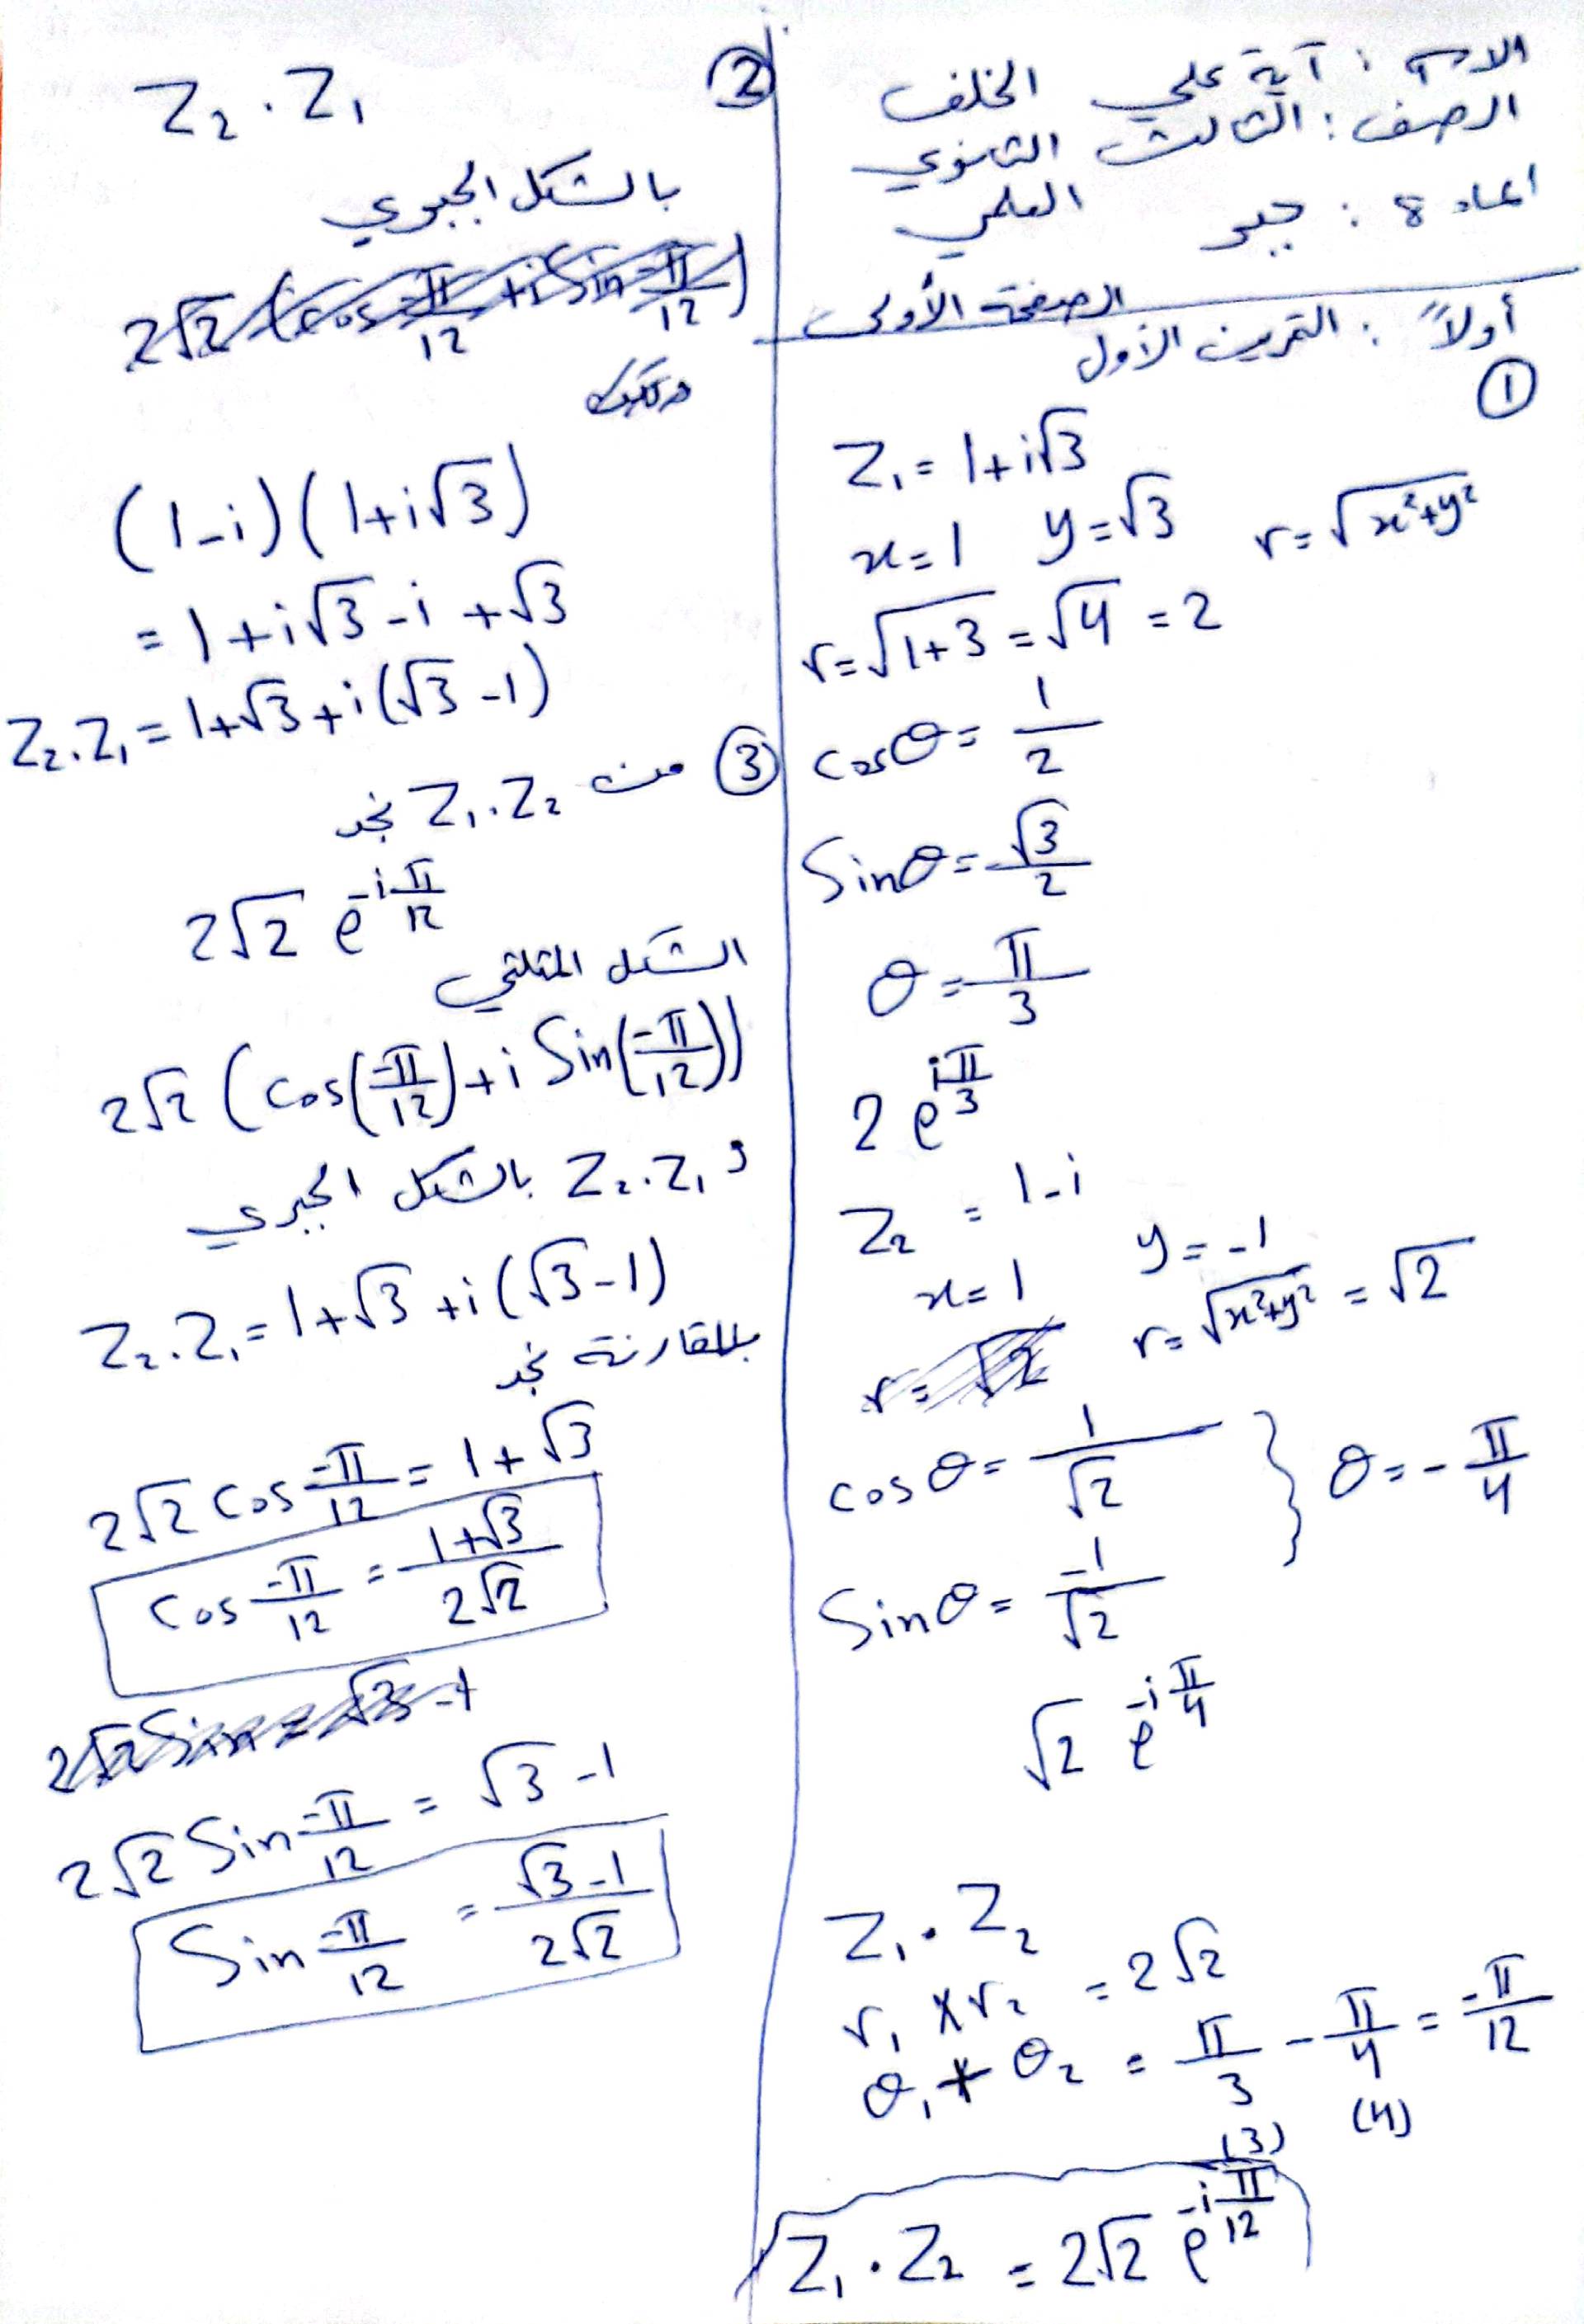 الاسم : آية علي الخلف
الصف : الثالث الثانوي العلمي
المادة : جبر
الصفحة الأولى
أولاً : التمرين الأول
①
Z₁ = 1+i√3
x=1 y=√3 r=√(x²+y²)
r=√(1+3) = √4 = 2
cosθ = 1/2
Sinθ = √3/2
θ = π/3
2 e^(iπ/3)
Z₂ = 1-i
x=1 y=-1
r=√(x²+y²) = √2
cosθ = 1/√2 } θ = -π/4
Sinθ = -1/√2
√2 e^(-iπ/4)
Z₁ . Z₂
r₁ × r₂ = 2√2
θ₁ + θ₂ = π/3 - π/4 = -π/12
(3) (4)
Z₁ . Z₂ = 2√2 e^(-iπ/12)
② Z₂ . Z₁
بالشكل الجبري
(1-i)(1+i√3)
= 1+i√3-i+√3
Z₂.Z₁ = 1+√3+i(√3-1)
③ من Z₁.Z₂ نجد
2√2 e^(-iπ/12)
الشكل المثلثي
2√2 (cos(-π/12)+i Sin(-π/12))
و Z₂.Z₁ بالشكل الجبري
Z₂.Z₁ = 1+√3+i(√3-1)
بالمقارنة نجد
2√2 cos -π/12 = 1+√3
cos -π/12 = (1+√3)/(2√2)
2√2 Sin -π/12 = √3-1
Sin -π/12 = (√3-1)/(2√2)